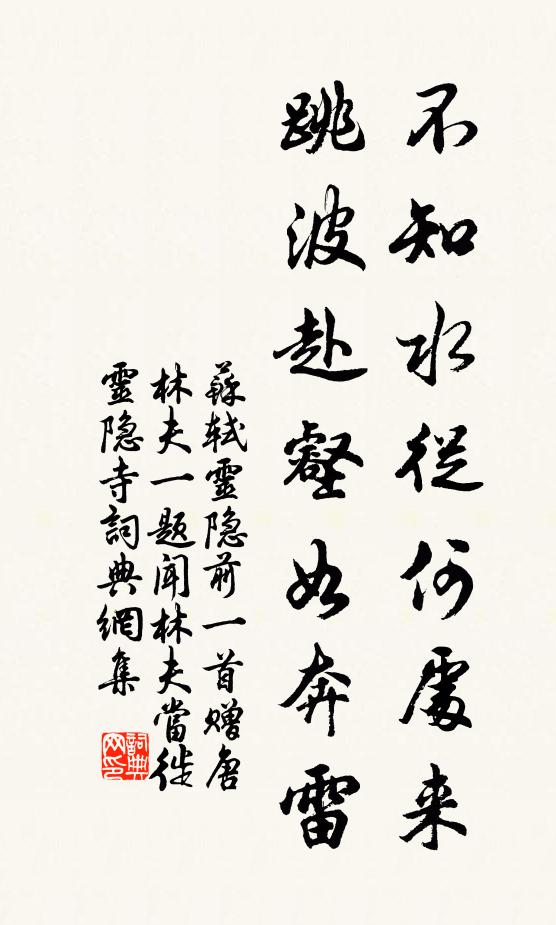 不知水從何處来
跳波赴壑如奔雷
蘇軾靈隐前一首赠唐
林夫一题闻林夫當徙
靈隐寺詞典網集
詞典网印